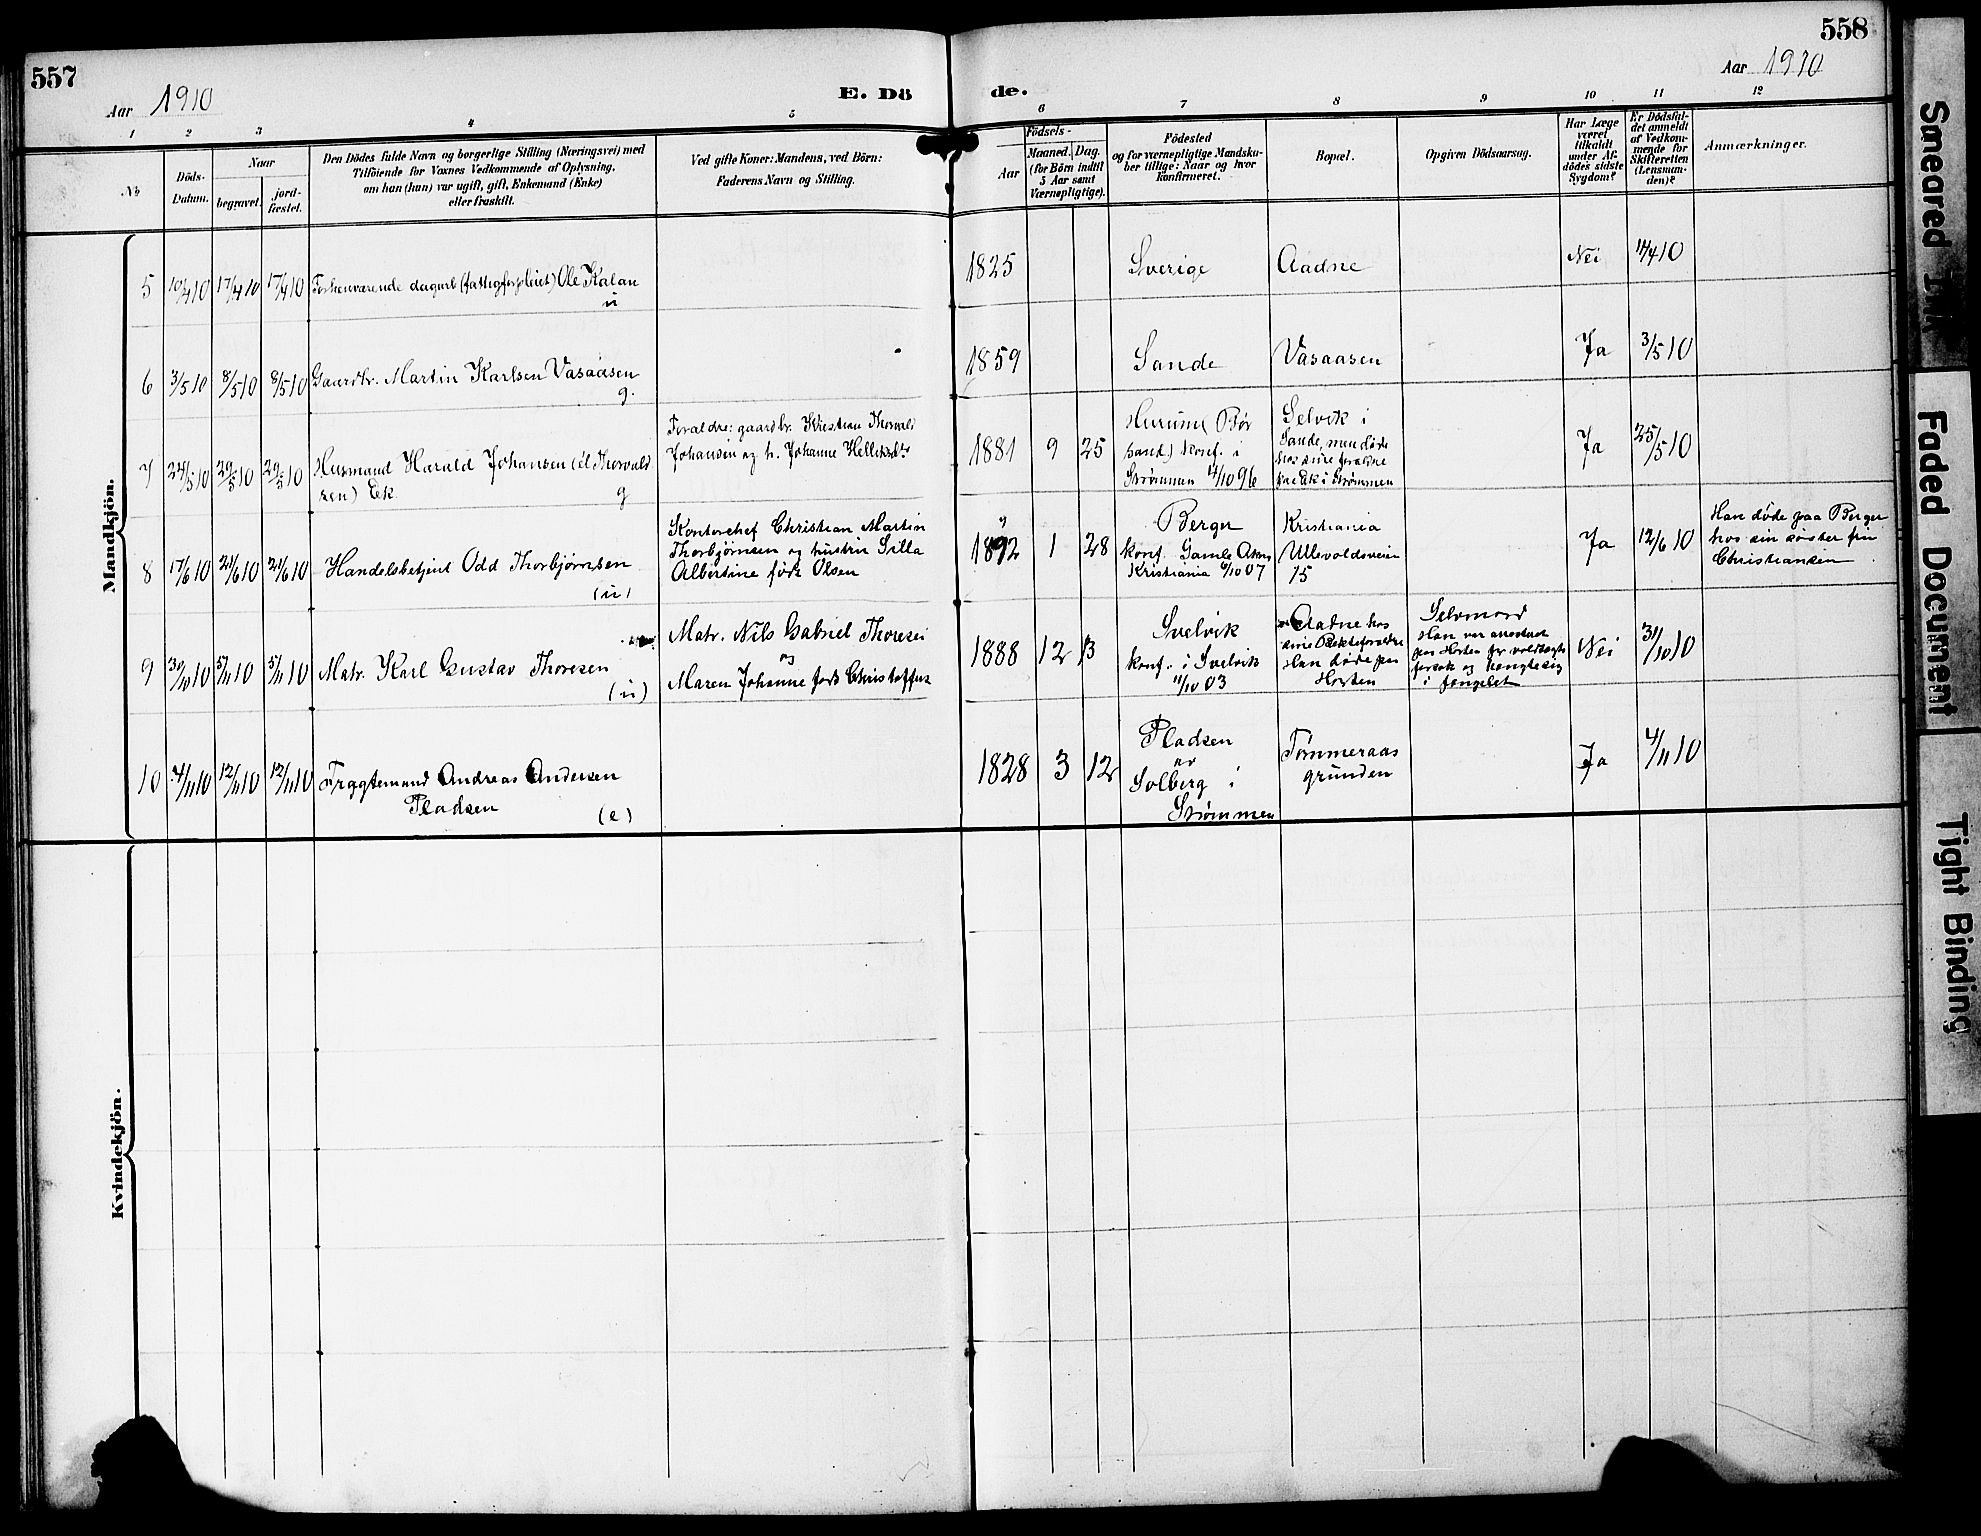 557
Aar 1910
E. Dö
de.
558
Aar 1910
1 2 3 4 5 6 7 8 9 10 11 12
No
Döds-
Datum.
Naar
begravet.
jord-
fæstet.
Den Dödes fulde Navn og borgerlige Stilling (Næringsvei) med
Tilföiende for Voxnes Vedkommende af Oplysning,
om han (hun) var ugift, gift, Enkemand (Enke)
eller fraskilt.
Ved gifte Koner: Mandens, ved Börn:
Faderens Navn og Stilling.
Födsels-
Aar
Maaned. Dag.
(for Börn indtil
5 Aar samt
Værnepligtige).
Födested
og for værnepligtige Mandska-
ber tillige: Naar og hvor
konfirmeret.
Bopæl.
Opgiven Dödsaarsag.
Har Læge
været
tilkaldt
under Af-
dödes sidste
Sygdom?
Er Dödsfal-
det anmeldt
af Vedkom-
mende for
Skifteretten
(Lensman-
den)?
Anmærkninger.
Mandkjön.
5 10/4 10 17/4 10 17/4 10 Forhenværende dagarb (fattigforpleiet) Ole Kalan
u
1825 Sverige Aadne Nei 14/4 10
6 3/5 10 8/5 10 8/5 10 Gaardbr. Martin Karlsen Vasaasen
g.
1859 Sande Vasaasen Ja 3/5 10
7 24/5 10 29/5 10 29/5 10 Husmand Harald Johansen (el Thorvald
sen) Ek
g
Foraldre: gaardbr. Kristian Thorvald
Johansen og h. Johanne
1881 9 25
Hurum (Bør
sand) konf. i
Strømmen 4/10 96
Selvik i
Sande, men døde
hos sine foraldre
paa Ek i Strømmen
Ja 25/5 10
8 17/6 10 21/6 10 21/6 10 Handelsbetjent Odd Thorbjørnsen
(u)
Kontorchef Christian Martin
Thorbjørnsen og hustru Silla
Albertine født Olsen
1892 1 28
Berger
konf. Gamle Akers
Kristiania 6/10 07
Kristiania
Ullevoldsveien
15
Ja 12/6 10
Han døde paa Berger
hos sin søster fru
Christiansen
9 30/10 10 5/11 10 5/11 10 Matr. Karl Gustav Thoresen
(u)
Matr. Nils Gabriel Thoresen
og
Maren Johanne født Christoffers
1888 12 3
Svelvik
konf. i Svelvik
11/10 03
Aadne hos
sine Pleieforaldre
Han døde paa
Horten
Selvmord
Han var arresteret
paa Horten for voldtægts
forsøk og hengte sig
i fængslet
Nei 31/10 10
10 4/11 10 12/11 10 12/11 10 Fragtemand Andreas Andersen
Pladsen
(e)
1828 3 12
Pladsen
av
Solberg i
Strømmen
Tømmeraas
grunden
Ja 4/11 10
Kvindekjön.
Smeared Ink
Faded Document
Tight Binding